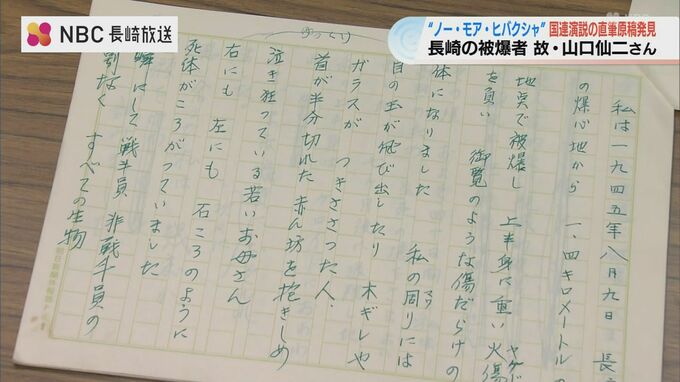 NBC 長崎放送
"ノー・モア・ヒバクシャ" 国連演説の直筆原稿発見
長崎の被爆者 故・山口仙二さん
私は一九四五年八月九日 長
の爆心地から 一、四キロメートルの
地点で被爆し 上半身に重い火傷
ヤケド
を負い 御覧のような傷だらけの
体になりました 私の周りには
目の玉が飛び出したり 木ギレや
ガラスが つきささった人、
首が半分切れた 赤ん坊を抱きしめ
泣き狂っている若いお母さん
右にも 左にも 石ころのように
死体がころがっていました
瞬にして 戦斗員 非戦斗員の
別なく すべての生物